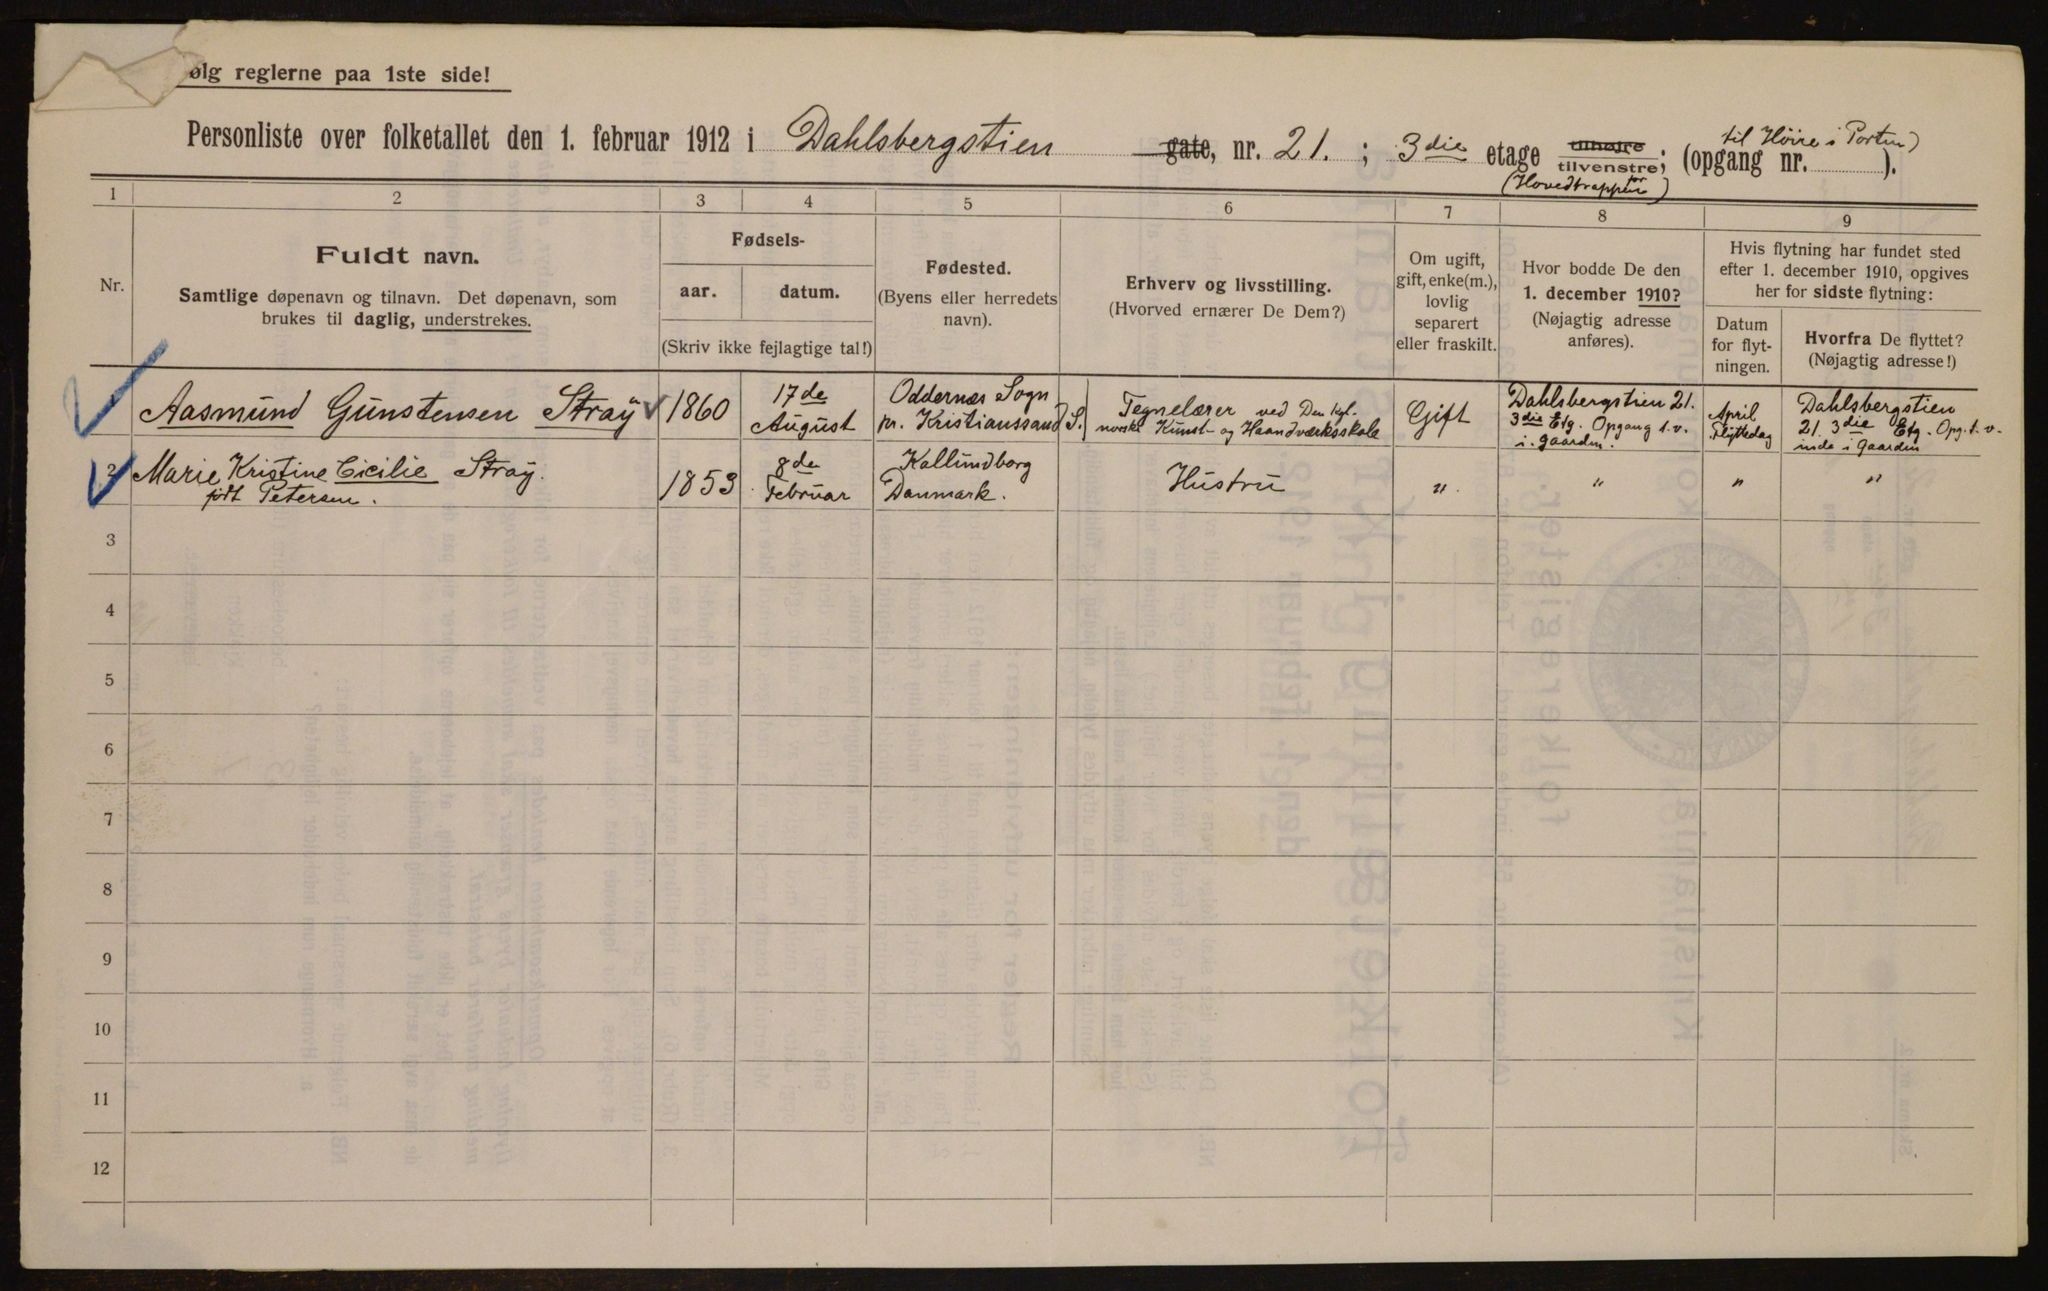 ølg reglerne paa 1ste side!
Personliste over folketallet den 1. februar 1912 i Dahlsbergstien gate, nr. 21. ; 3die etage tilhøire tilvenstre; (opgang nr. ).
til Høire i Porten)
(Hovedtrappen)
1 2 3 4 5 6 7 8 9
Nr.
Fuldt navn.
Samtlige døpenavn og tilnavn. Det døpenavn, som
brukes til daglig, understrekes.
Fødsels-
aar. datum.
(Skriv ikke fejlagtige tal!)
Fødested.
(Byens eller herredets
navn).
Erhverv og livsstilling.
(Hvorved ernærer De Dem?)
Om ugift,
gift, enke(m.),
lovlig
separert
eller fraskilt.
Hvor bodde De den
1. december 1910?
(Nøjagtig adresse
anføres).
Hvis flytning har fundet sted
efter 1. december 1910, opgives
her for sidste flytning:
Datum
for flyt-
ningen.
Hvorfra De flyttet?
(Nøjagtig adresse!)
Aasmund Gunstensen Straÿ
1860
17de
August
Oddernæs Sogn
nr. Kristianssand S.
Tegnelærer ved Den kgl.
norske Kunst- og Haandværksskole
Gift
Dahlsbergstien 21.
3die Etg. Opgang 1. v.
i. gaarden.
April
Flyttedag
Dahlsbergstien
21. 3die Etg. Opg. 1. v.
inde i gaarden
2
Marie Kristine Cicilie Straÿ.
født Petersen.
1853
8de
Februar
Kallundborg
Danmark.
Hustru
" .
"
"
"
3
4
5
6
7
8
9
10
11
12